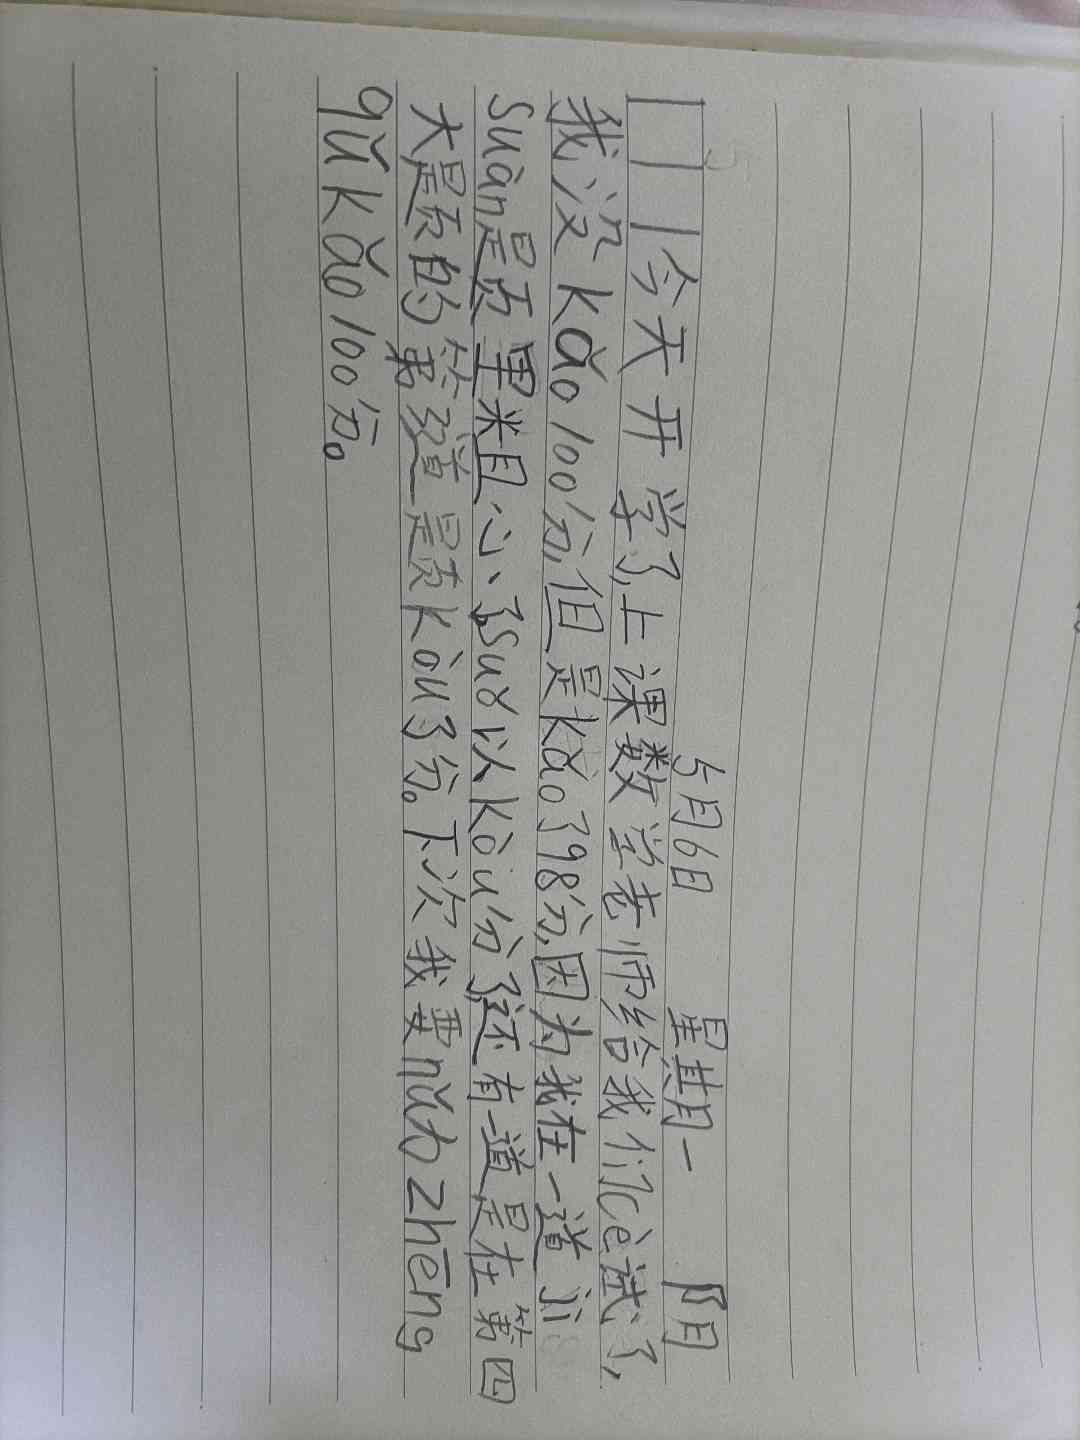 5月6日 星期一 阴
今天开学了,上课数学老师给我们cè试了,
我没kǎo100分,但是kǎo了98分,因为我在一道jì
suàn题里粗心了suǒ以kòu分了还有一道是在第四
大题的第2道题kòu3分。下次我要nǔ力zhēng
qǔkǎo100分。